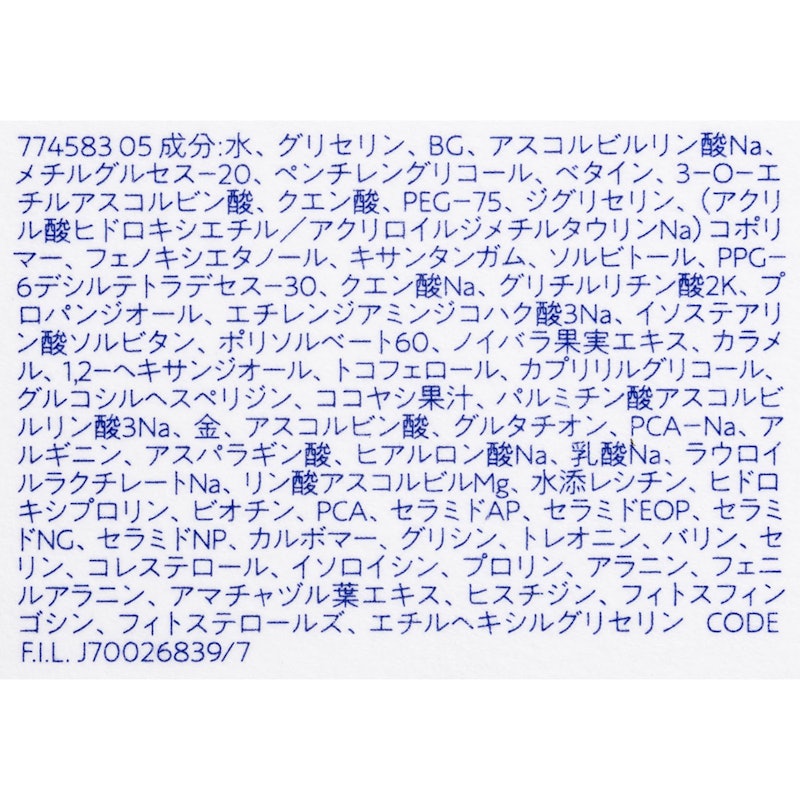 774583 05 成分:水、グリセリン、BG、アスコルビルリン酸Na、
メチルグルセス−20、ペンチレングリコール、ベタイン、3−O−エ
チルアスコルビン酸、クエン酸、PEG−75、ジグリセリン、(アクリ
ル酸ヒドロキシエチル/アクリロイルジメチルタウリンNa)コポリ
マー、フェノキシエタノール、キサンタンガム、ソルビトール、PPG−
6デシルテトラデセス−30、クエン酸Na、グリチルリチン酸2K、プ
ロパンジオール、エチレンジアミンジコハク酸3Na、イソステアリ
ン酸ソルビタン、ポリソルベート60、ノイバラ果実エキス、カラメ
ル、1,2−ヘキサンジオール、トコフェロール、カプリリルグリコール、
グルコシルヘスペリジン、ココヤシ果汁、パルミチン酸アスコルビ
ルリン酸3Na、金、アスコルビン酸、グルタチオン、PCA−Na、ア
ルギニン、アスパラギン酸、ヒアルロン酸Na、乳酸Na、ラウロイ
ルラクチレートNa、リン酸アスコルビルMg、水添レシチン、ヒドロ
キシプロリン、ビオチン、PCA、セラミドAP、セラミドEOP、セラミ
ドNG、セラミドNP、カルボマー、グリシン、トレオニン、バリン、セ
リン、コレステロール、イソロイシン、プロリン、アラニン、フェニ
ルアラニン、アマチャヅル葉エキス、ヒスチジン、フィトスフィン
ゴシン、フィトステロールズ、エチルヘキシルグリセリン CODE
F.I.L. J70026839/7